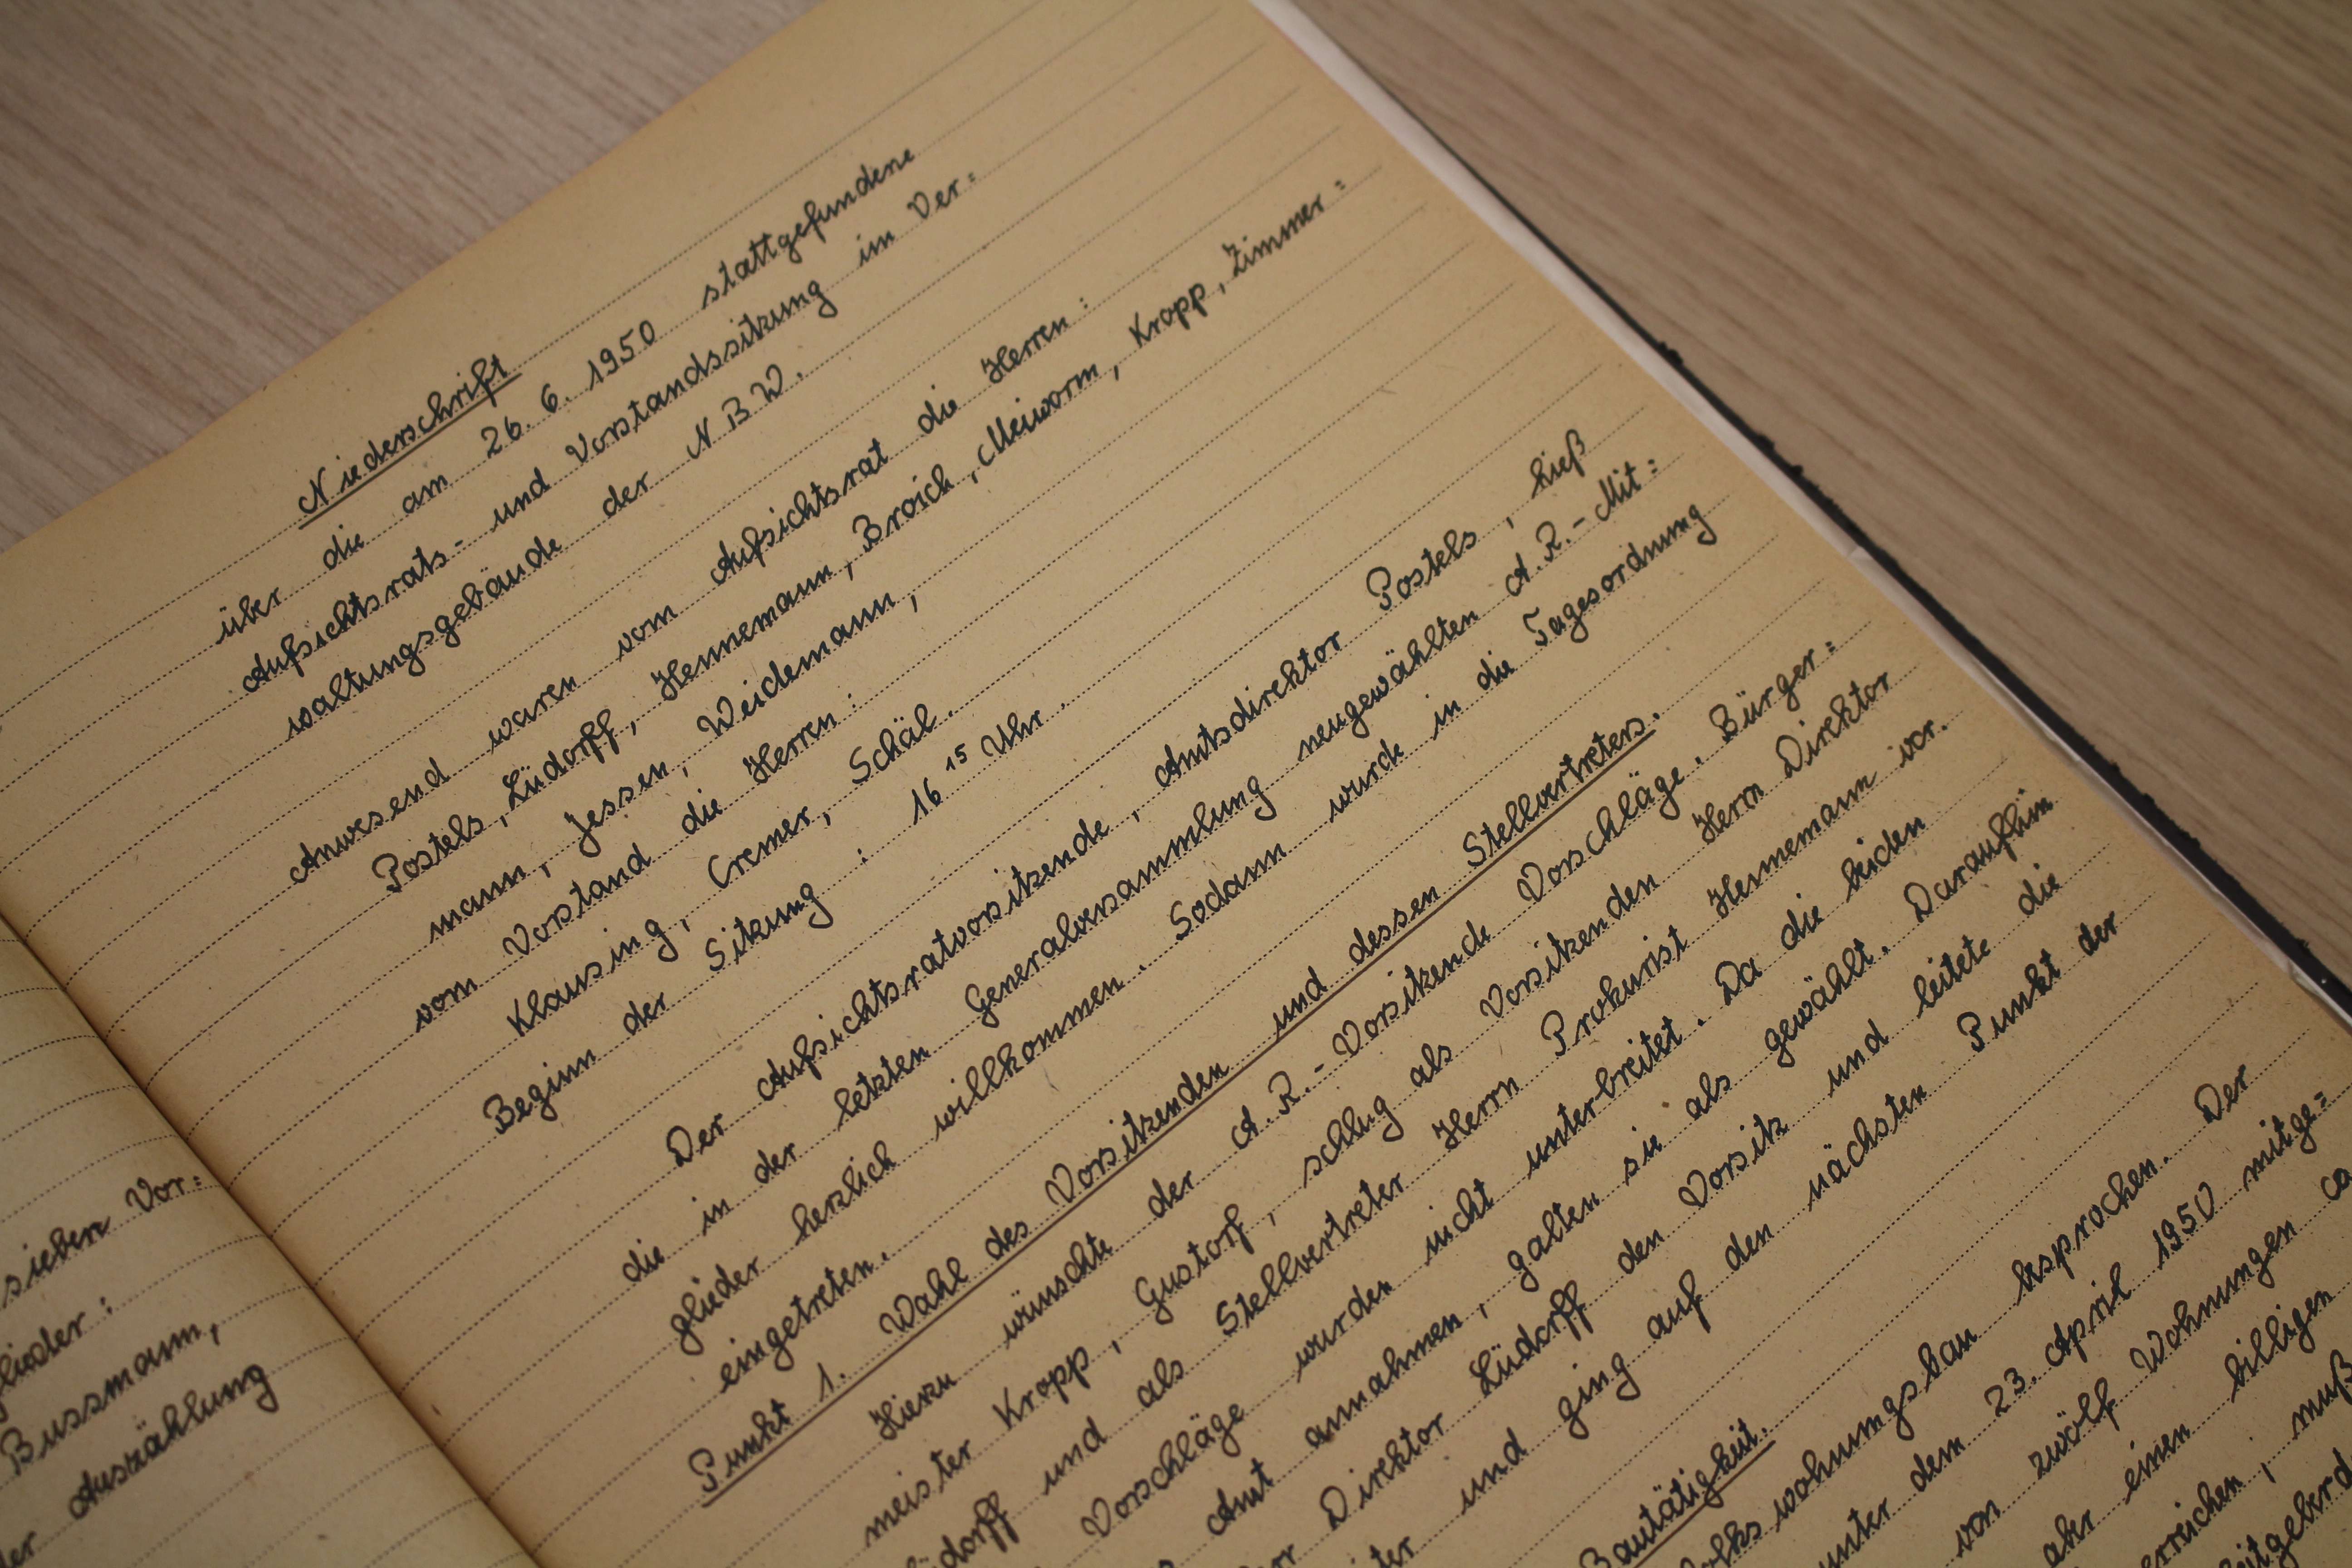 sieben Vor=
glieder:
Bussmann,
der Auszählung
Niederschrift
über die am 26. 6. 1950 stattgefundene
Aufsichtsrats- und Vorstandssitzung im Ver=
waltungsgebäude der N B W.
Anwesend waren vom Aufsichtsrat die Herren:
Postels, Lüdorff, Hennemann, Broich, Meiworm, Kropp, Zimmer=
mann, Jessen, Weidemann,
vom Vorstand die Herren:
Klausing, Cremer, Schäl.
Beginn der Sitzung: 16 15 Uhr.
Der Aufsichtsratvorsitzende, Amtsdirektor Postels, hieß
die in der letzten Generalversammlung neugewählten A. R.-Mit=
glieder herzlich willkommen. Sodann wurde in die Tagesordnung
eingetreten.
Punkt 1. Wahl des Vorsitzenden und dessen Stellvertreters.
Hierzu wünschte der A. R.-Vorsitzende Vorschläge. Bürger=
meister Kropp, Gustorf, schlug als Vorsitzenden Herrn Direktor
Lüdorff und als Stellvertreter Herrn Prokurist Hennemann vor.
Vorschläge wurden nicht unterbreitet. Da die beiden
Amt annahmen, galten sie als gewählt. Daraufhin
Direktor Lüdorff den Vorsitz und leitete die
und ging auf den nächsten Punkt der
Bautätigkeit.
Volkswohnungsbau besprochen. Der
unter dem 23. April 1950 mitge=
von zwölf Wohnungen ca
aber einen billigen
erreichen, muß